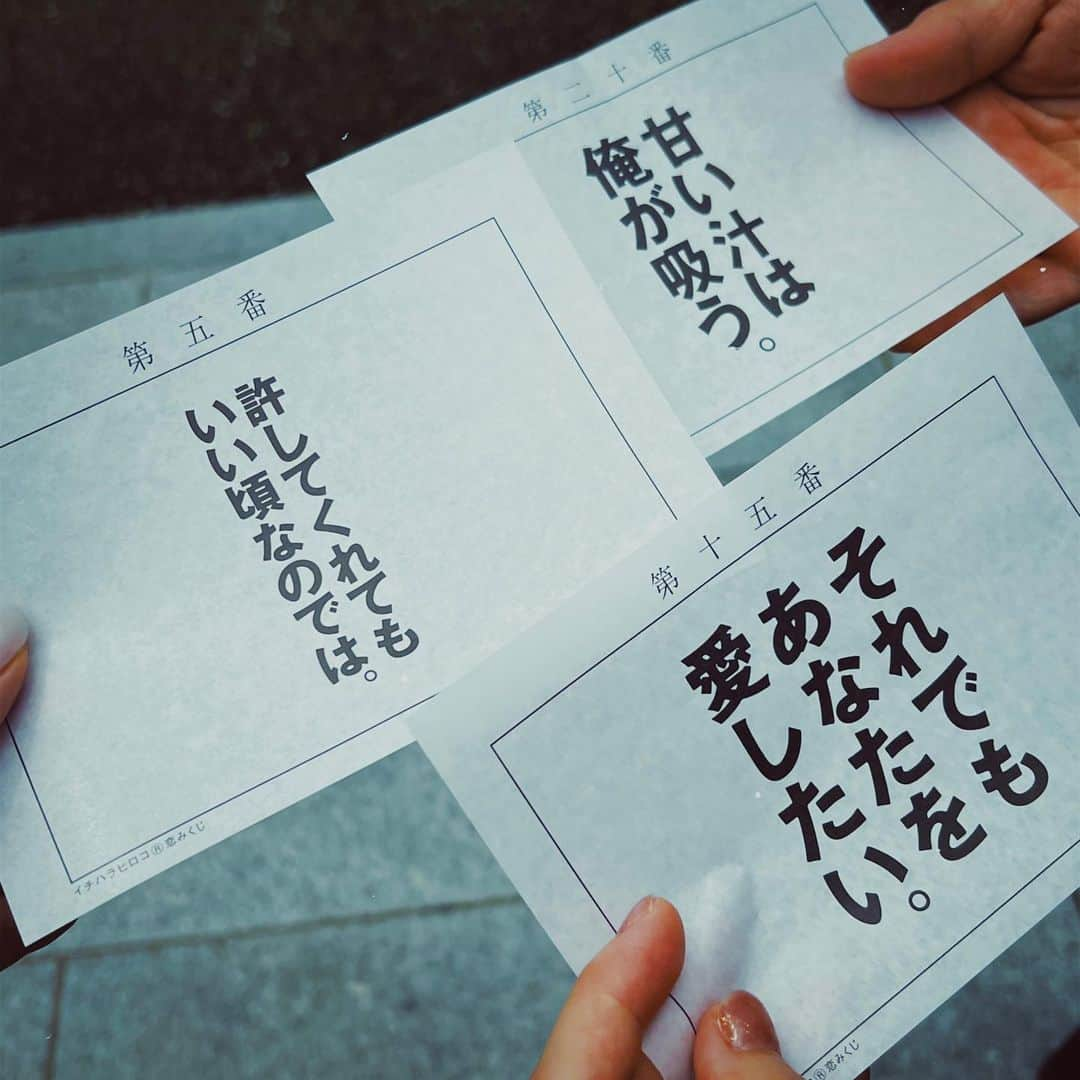 第二十番
甘い汁は
俺が吸う。
第五番
許してくれても
いい頃なのでは。
イチハラヒロコ®恋みくじ
第十五番
それでも
あなたを
愛したい。
®恋みくじ